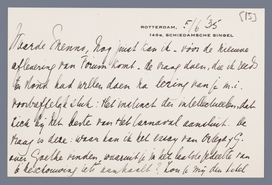 [15]
ROTTERDAM, 5/6 '35
149A, SCHIEDAMSCHE SINGEL
Waarde Menno, Nog juist kan ik - voor de nieuwe
aflevering van Forum komt - de vraag doen, die ik reeds
had willen doen na lezing van je m.i.
voortreffelijk stuk: Het instinct der intellectueelen, dat
zich bij het beste van Het Carnaval aansluit. De
vraag is deze: waar kan ik het essay van Ortega y G.
over Goethe vinden, waaruit je in het laatste gedeelte van
je beschouwing iets aanhaalt? Kun je mij den titel